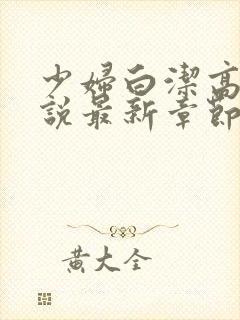 少婦白潔高
說最新章節
黃大全